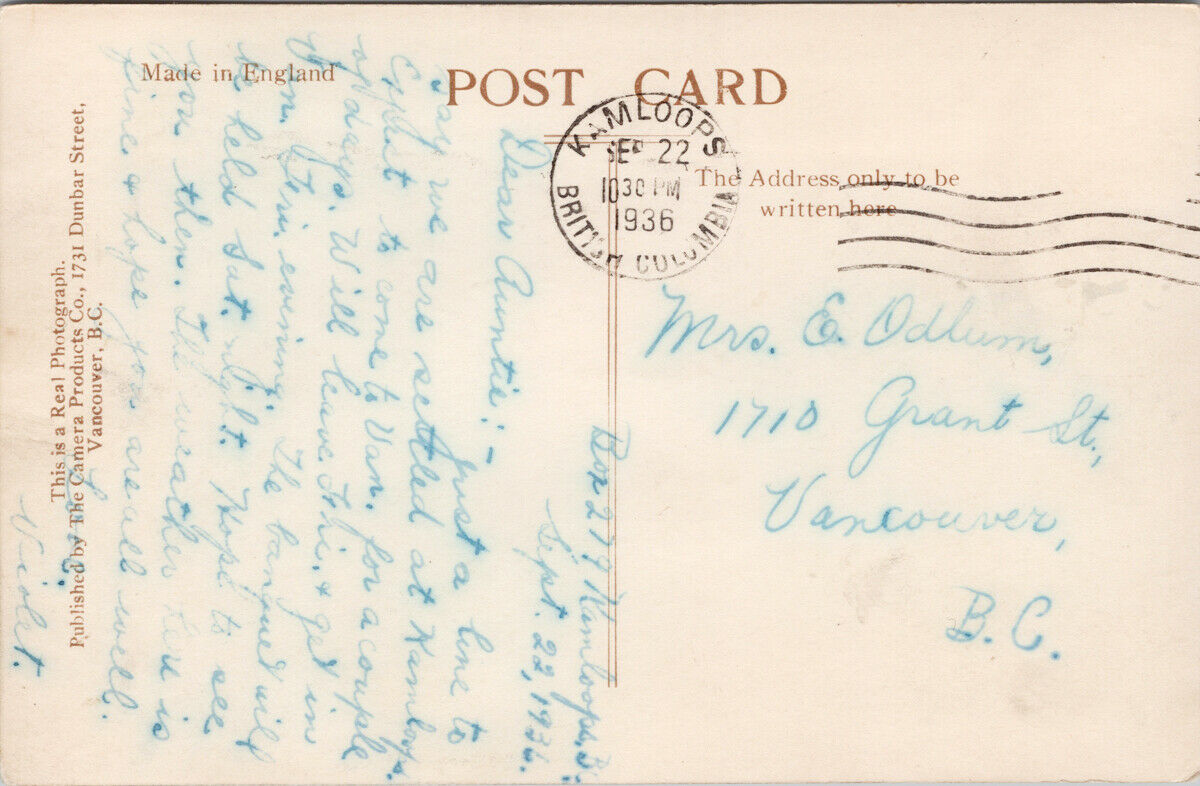 Made in England
POST CARD
KAMLOOPS
SEP 22
10 30 PM
1936
BRITISH COLUMBIA
The Address only to be
written here
This is a Real Photograph.
Published by The Camera Products Co., 1731 Dunbar Street,
Vancouver, B.C.
Box 279 Kamloops, B.
Sept. 22, 1936.
Dear Auntie:-
Just a line to
say we are settled at Kamloops.
Expect to come to Van. for a couple
of days. Will leave Thu. & get in
Fri. evening. The banquet will
be held Sat. night. Hope to see
you then. The weather here is
fine & hope you are all well.
Love,
Violet.
Mrs. E. Odlum,
1710 Grant St.,
Vancouver,
B.C.